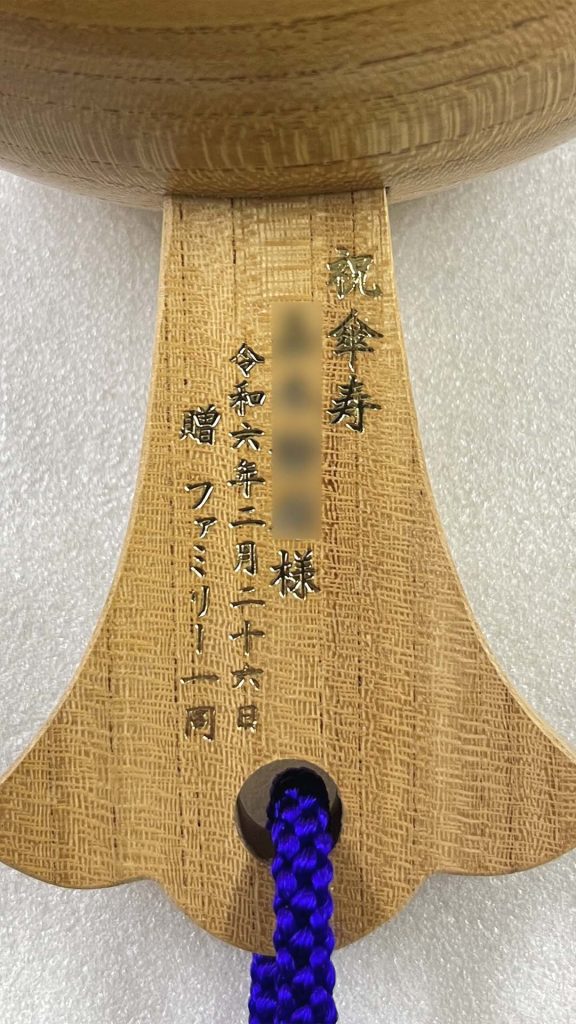 祝傘寿
様
令和六年二月二十六日
贈 ファミリー一同